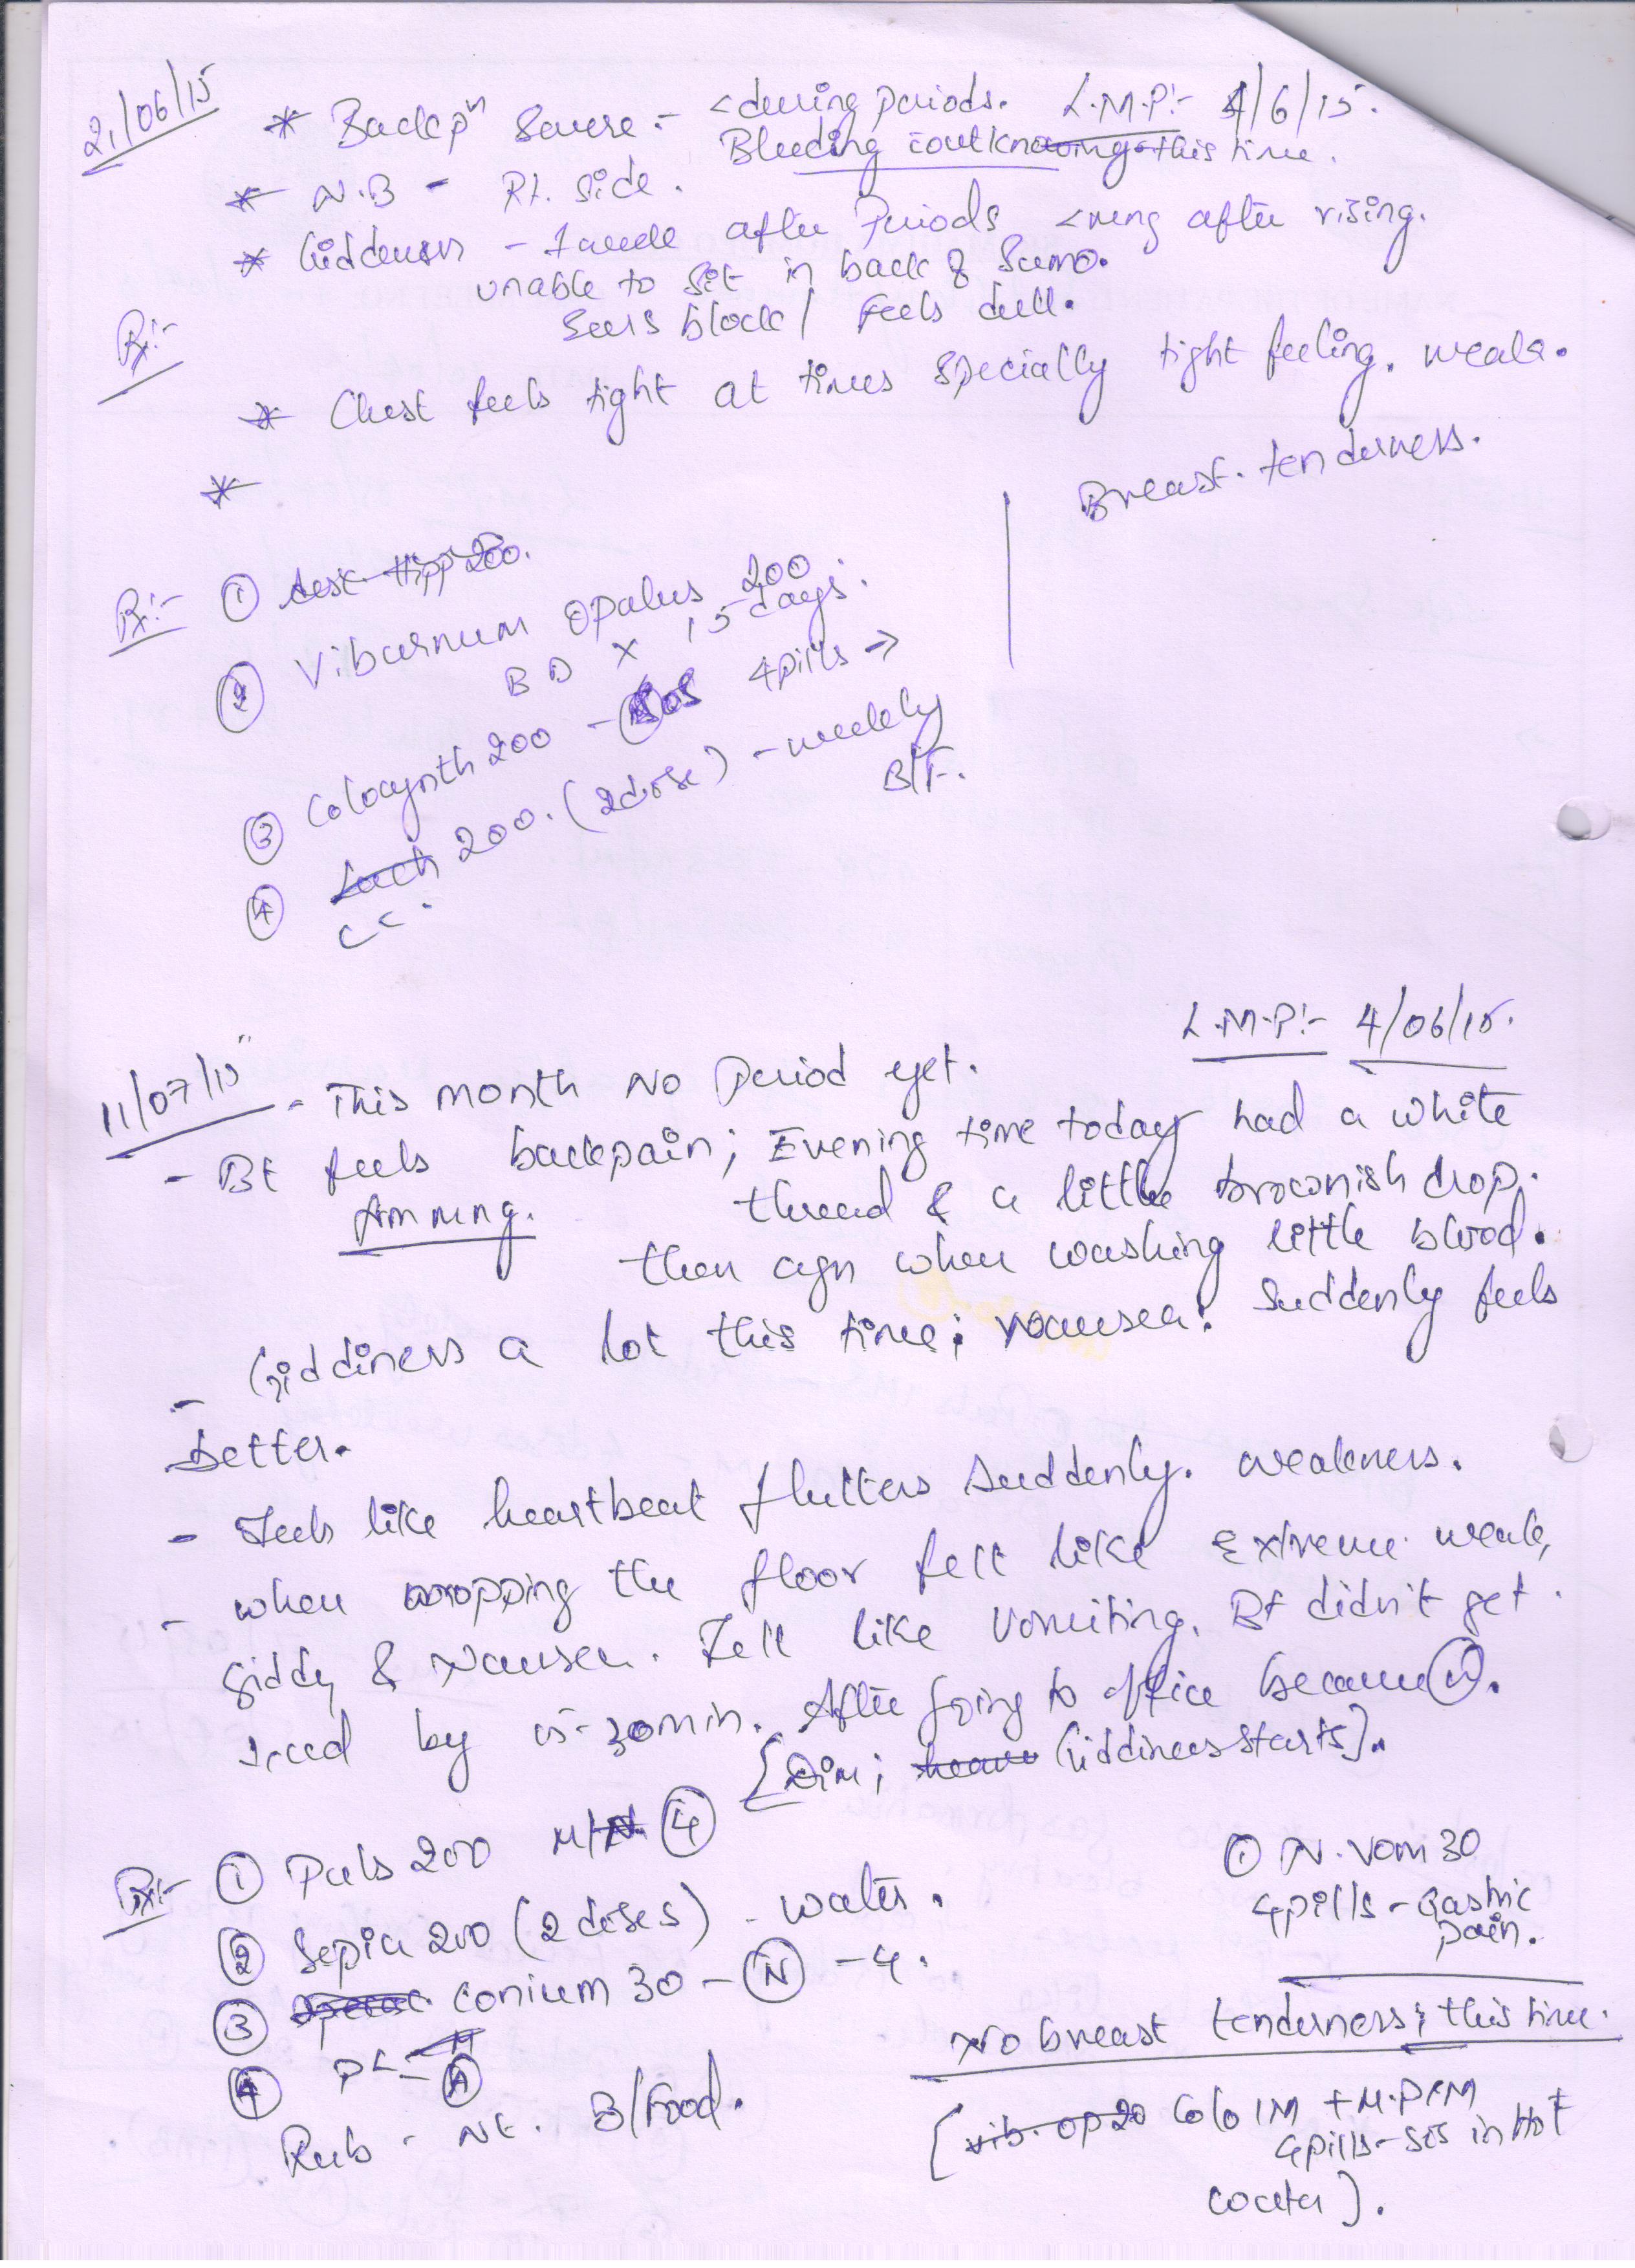 21/06/15
* Backpn Severe :- < during periods. L.M.P:- 4/6/15.
Bleeding this time.
* N.B - Rt. side.
* Giddeness - after Periods < mrng after rising.
unable to sit in back of Sumo.
Sees black / Feels dull.
Rx:-
* Chest feels tight at times specially tight feeling. weak.
*
Breast. tenderness.
Rx:- ① 200.
② Viburnum Opalus 200
BD x 15 days.
③ Colocynth 200 - SOS 4pills →
④ Lach 200. (2dose) - weekly
B/F.
L.M.P:- 4/06/15.
11/07/15
- This month No Period yet.
- Bt feels backpain; Evening time today had a white
thread & a little brownish drop.
then agn when washing little blood.
- Giddiness a lot this time; nausea. Suddenly feels
better.
- Feels like heartbeat flutters suddenly. weakness.
- when mopping the floor felt like Extreme weak,
giddy & Nausea. Felt like vomiting. Bt didn't get.
by 15-30min. After going to office became N.
[Dim; heave Giddiness starts].
Rx:- ① Puls 200 M/N ④
② Sepia 200 (2 doses) - water.
③ conium 30 - N - 4.
④ PL - A
Rub - Nt. B/Food.
① N. Vom 30
4pills - Gastric
pain.
No breast tenderness; this time.
[vib. op 20 Colo 1M + M.P 1M
4pills - SOS in Hot
water].